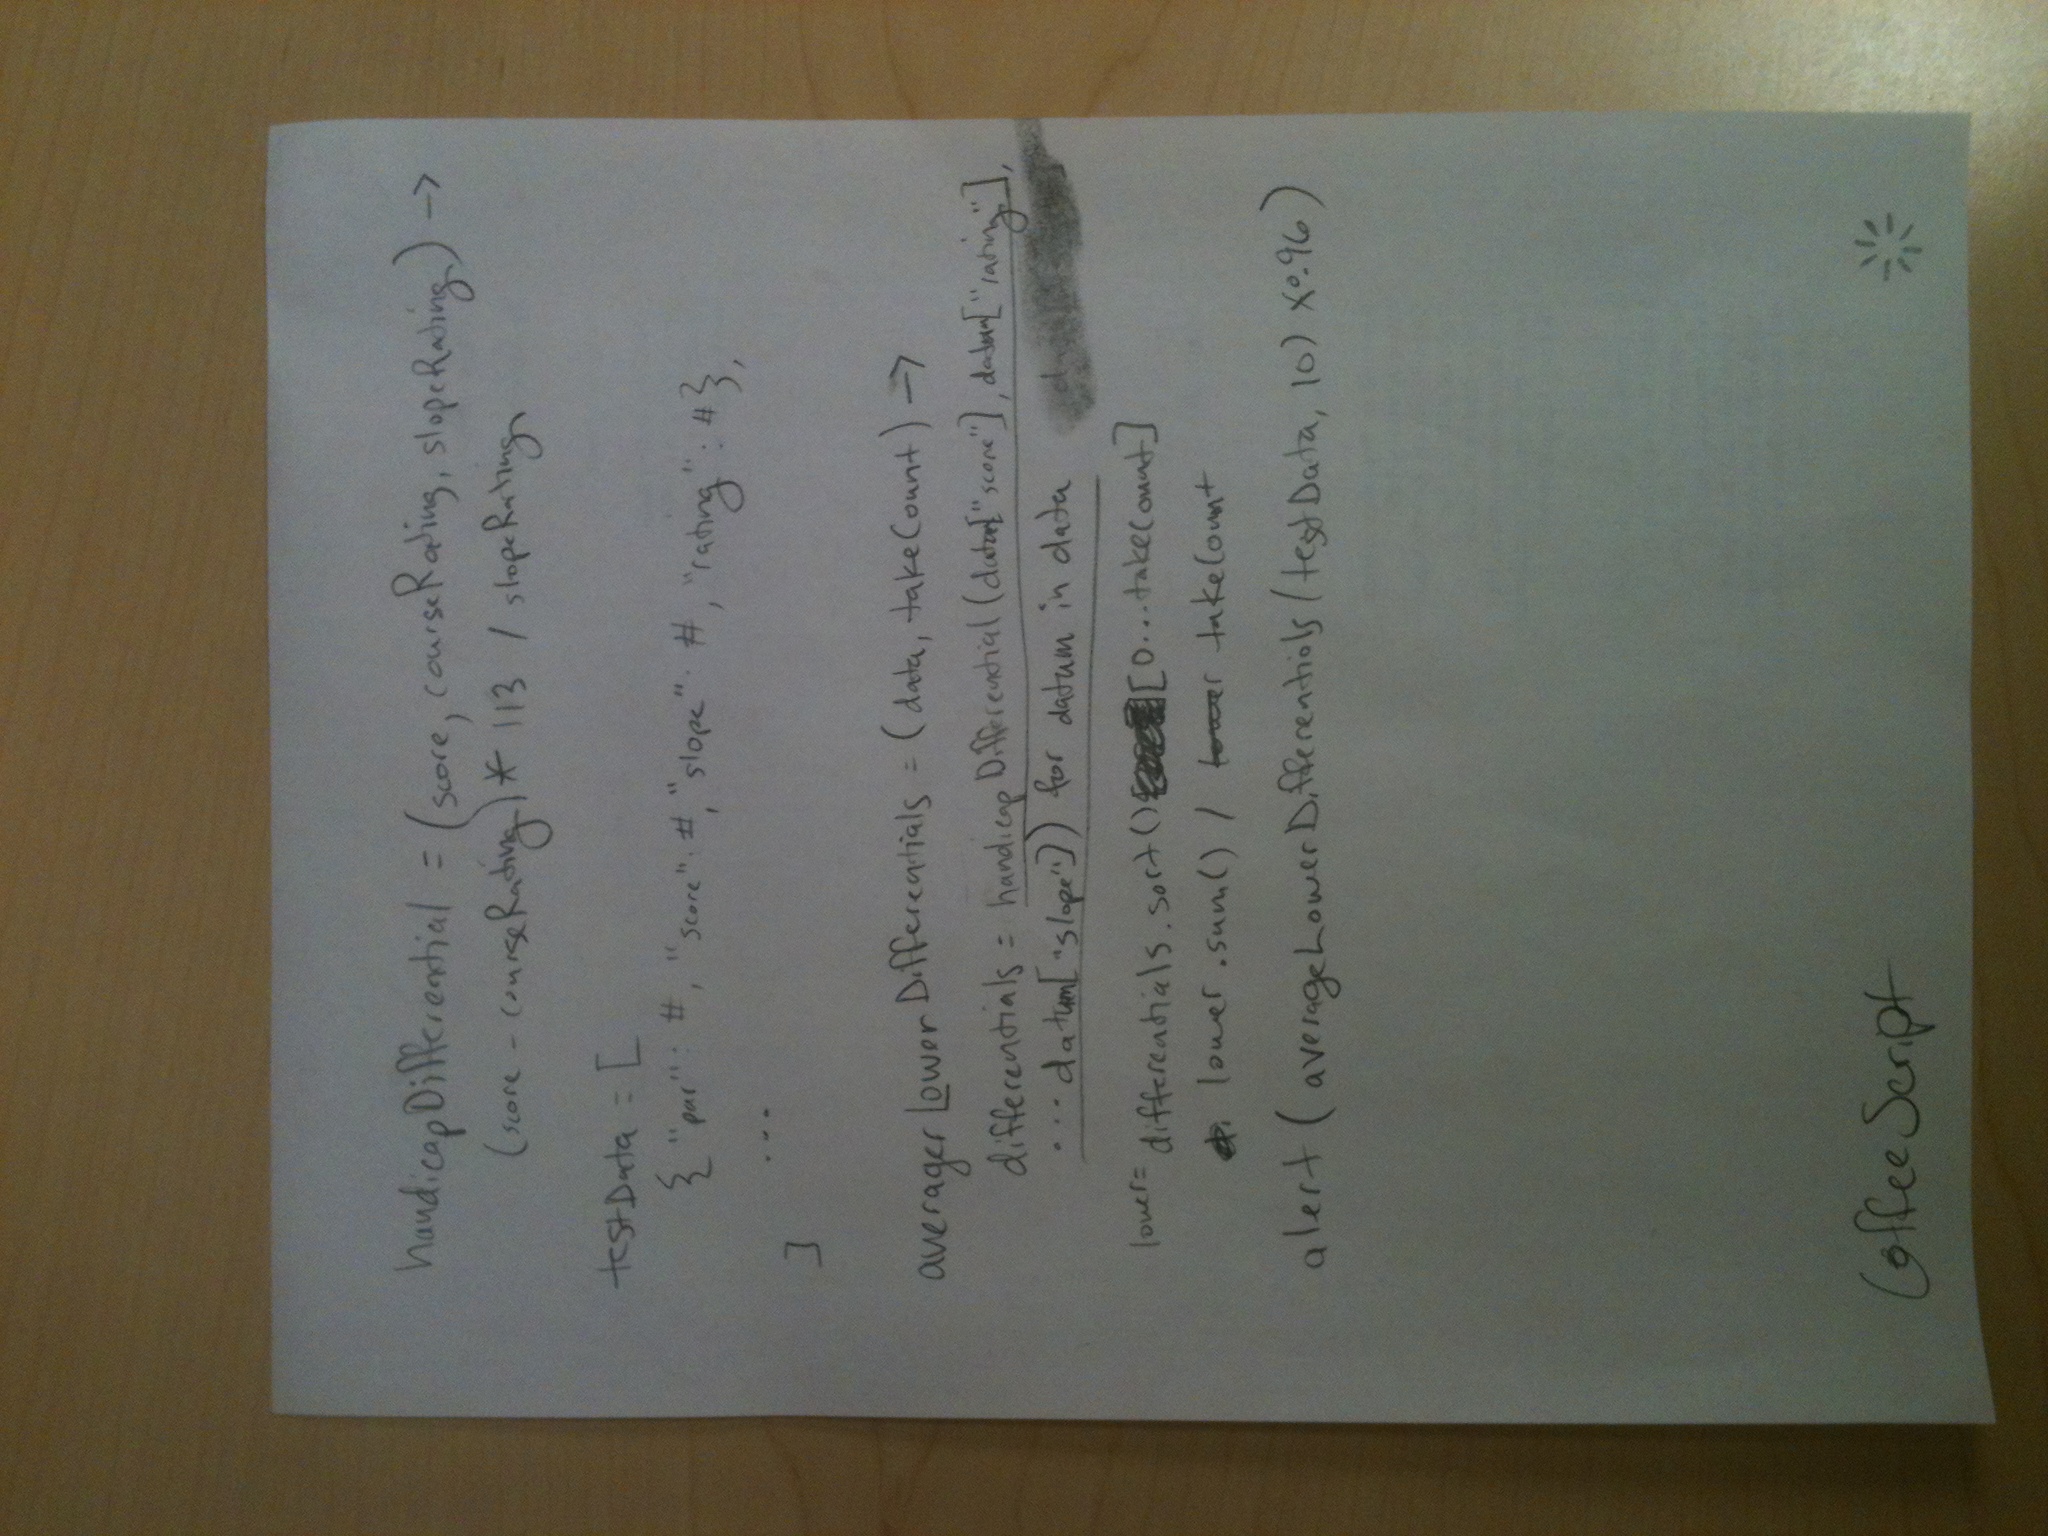 handicapDifferential = (score, courseRating, slopeRating) ->
(score - courseRating) * 113 / slopeRating
testData = [
{ "par": #, "score": #, "slope": #, "rating": #},
...
]
averagerLowerDifferentials = (data, takeCount) ->
differentials = handicapDifferential(datum["score"], datum["rating"],
... datum["slope"]) for datum in data
lower= differentials.sort() [0...takeCount]
lower.sum() / lower takeCount
alert (averageLowerDifferentials(testData, 10) x0.96)
CoffeeScript